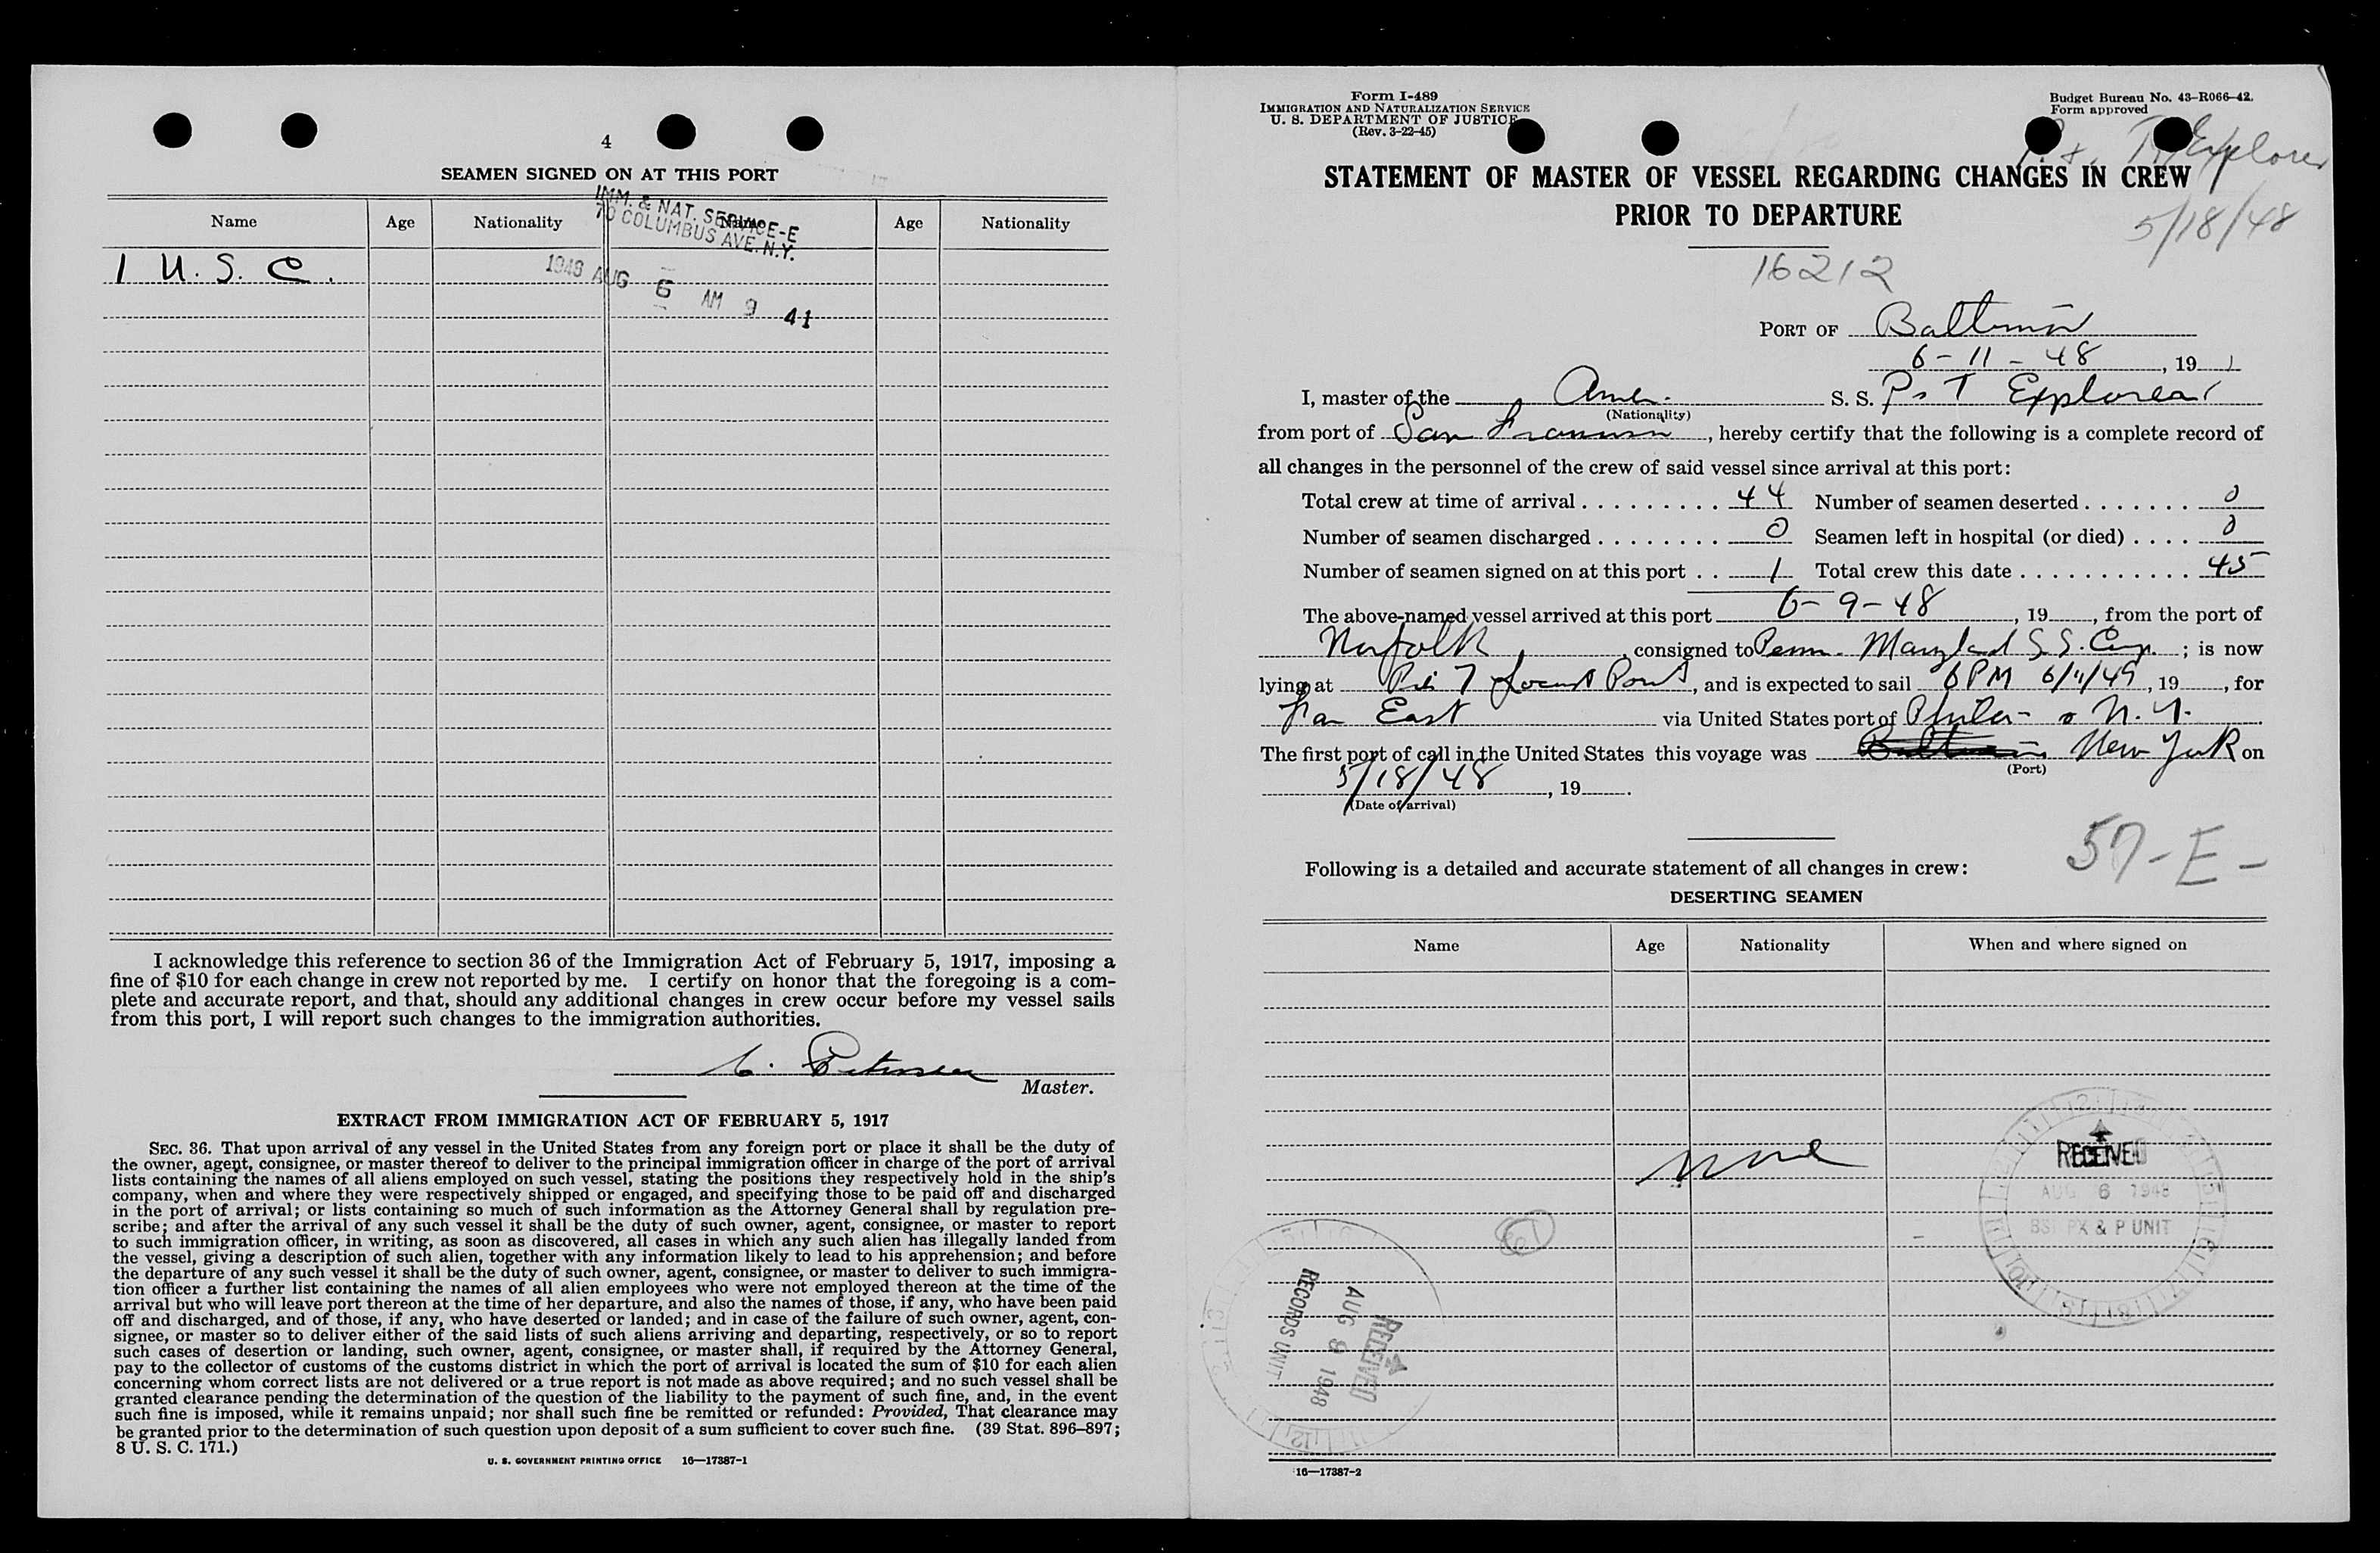 4
SEAMEN SIGNED ON AT THIS PORT
IMM. & NAT. SERVICE-E
70 COLUMBUS AVE. N.Y.
Name Age Nationality Name Age Nationality
1 U. S. C.
1948 AUG 6 AM 9 41
I acknowledge this reference to section 36 of the Immigration Act of February 5, 1917, imposing a
fine of $10 for each change in crew not reported by me. I certify on honor that the foregoing is a com-
plete and accurate report, and that, should any additional changes in crew occur before my vessel sails
from this port, I will report such changes to the immigration authorities.
C. Petersen
Master.
EXTRACT FROM IMMIGRATION ACT OF FEBRUARY 5, 1917
SEC. 36. That upon arrival of any vessel in the United States from any foreign port or place it shall be the duty of
the owner, agent, consignee, or master thereof to deliver to the principal immigration officer in charge of the port of arrival
lists containing the names of all aliens employed on such vessel, stating the positions they respectively hold in the ship's
company, when and where they were respectively shipped or engaged, and specifying those to be paid off and discharged
in the port of arrival; or lists containing so much of such information as the Attorney General shall by regulation pre-
scribe; and after the arrival of any such vessel it shall be the duty of such owner, agent, consignee, or master to report
to such immigration officer, in writing, as soon as discovered, all cases in which any such alien has illegally landed from
the vessel, giving a description of such alien, together with any information likely to lead to his apprehension; and before
the departure of any such vessel it shall be the duty of such owner, agent, consignee, or master to deliver to such immigra-
tion officer a further list containing the names of all alien employees who were not employed thereon at the time of the
arrival but who will leave port thereon at the time of her departure, and also the names of those, if any, who have been paid
off and discharged, and of those, if any, who have deserted or landed; and in case of the failure of such owner, agent, con-
signee, or master so to deliver either of the said lists of such aliens arriving and departing, respectively, or so to report
such cases of desertion or landing, such owner, agent, consignee, or master shall, if required by the Attorney General,
pay to the collector of customs of the customs district in which the port of arrival is located the sum of $10 for each alien
concerning whom correct lists are not delivered or a true report is not made as above required; and no such vessel shall be
granted clearance pending the determination of the question of the liability to the payment of such fine, and, in the event
such fine is imposed, while it remains unpaid; nor shall such fine be remitted or refunded: Provided, That clearance may
be granted prior to the determination of such question upon deposit of a sum sufficient to cover such fine. (39 Stat. 896–897;
8 U. S. C. 171.)
U. S. GOVERNMENT PRINTING OFFICE 16—17387-1
Form I-489
IMMIGRATION AND NATURALIZATION SERVICE
U. S. DEPARTMENT OF JUSTICE
(Rev. 3-22-45)
Budget Bureau No. 43-R066-42.
Form approved
P. & T. Explorer
STATEMENT OF MASTER OF VESSEL REGARDING CHANGES IN CREW
PRIOR TO DEPARTURE
5/18/48
16212
PORT OF Baltimore
6-11-48, 19
I, master of the Amer. S. S. P & T Explorer
(Nationality)
from port of San Francisco, hereby certify that the following is a complete record of
all changes in the personnel of the crew of said vessel since arrival at this port:
Total crew at time of arrival 44 Number of seamen deserted 0
Number of seamen discharged 0 Seamen left in hospital (or died) 0
Number of seamen signed on at this port 1 Total crew this date 45
The above-named vessel arrived at this port 6-9-48, 19, from the port of
Norfolk, consigned to Penn-Maryland S S. Corp.; is now
lying at Pier 7 Locust Point, and is expected to sail 6 PM 6/11/49, 19, for
Far East via United States port of Phila- & N. Y.
The first port of call in the United States this voyage was Baltimore New York on
(Port)
5/18/48, 19.
(Date of arrival)
57-E-
Following is a detailed and accurate statement of all changes in crew:
DESERTING SEAMEN
Name Age Nationality When and where signed on
None
RECEIVED
AUG 6 1948
BSI PX & P UNIT
RECEIVED
AUG 9 1948
RECORDS UNIT
16—17387-2